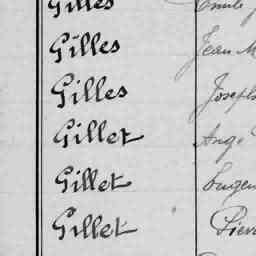 Gilles Emile
Gilles Jean M
Gilles Joseph
Gillet Ang.
Gillet Eugen
Gillet Pierr